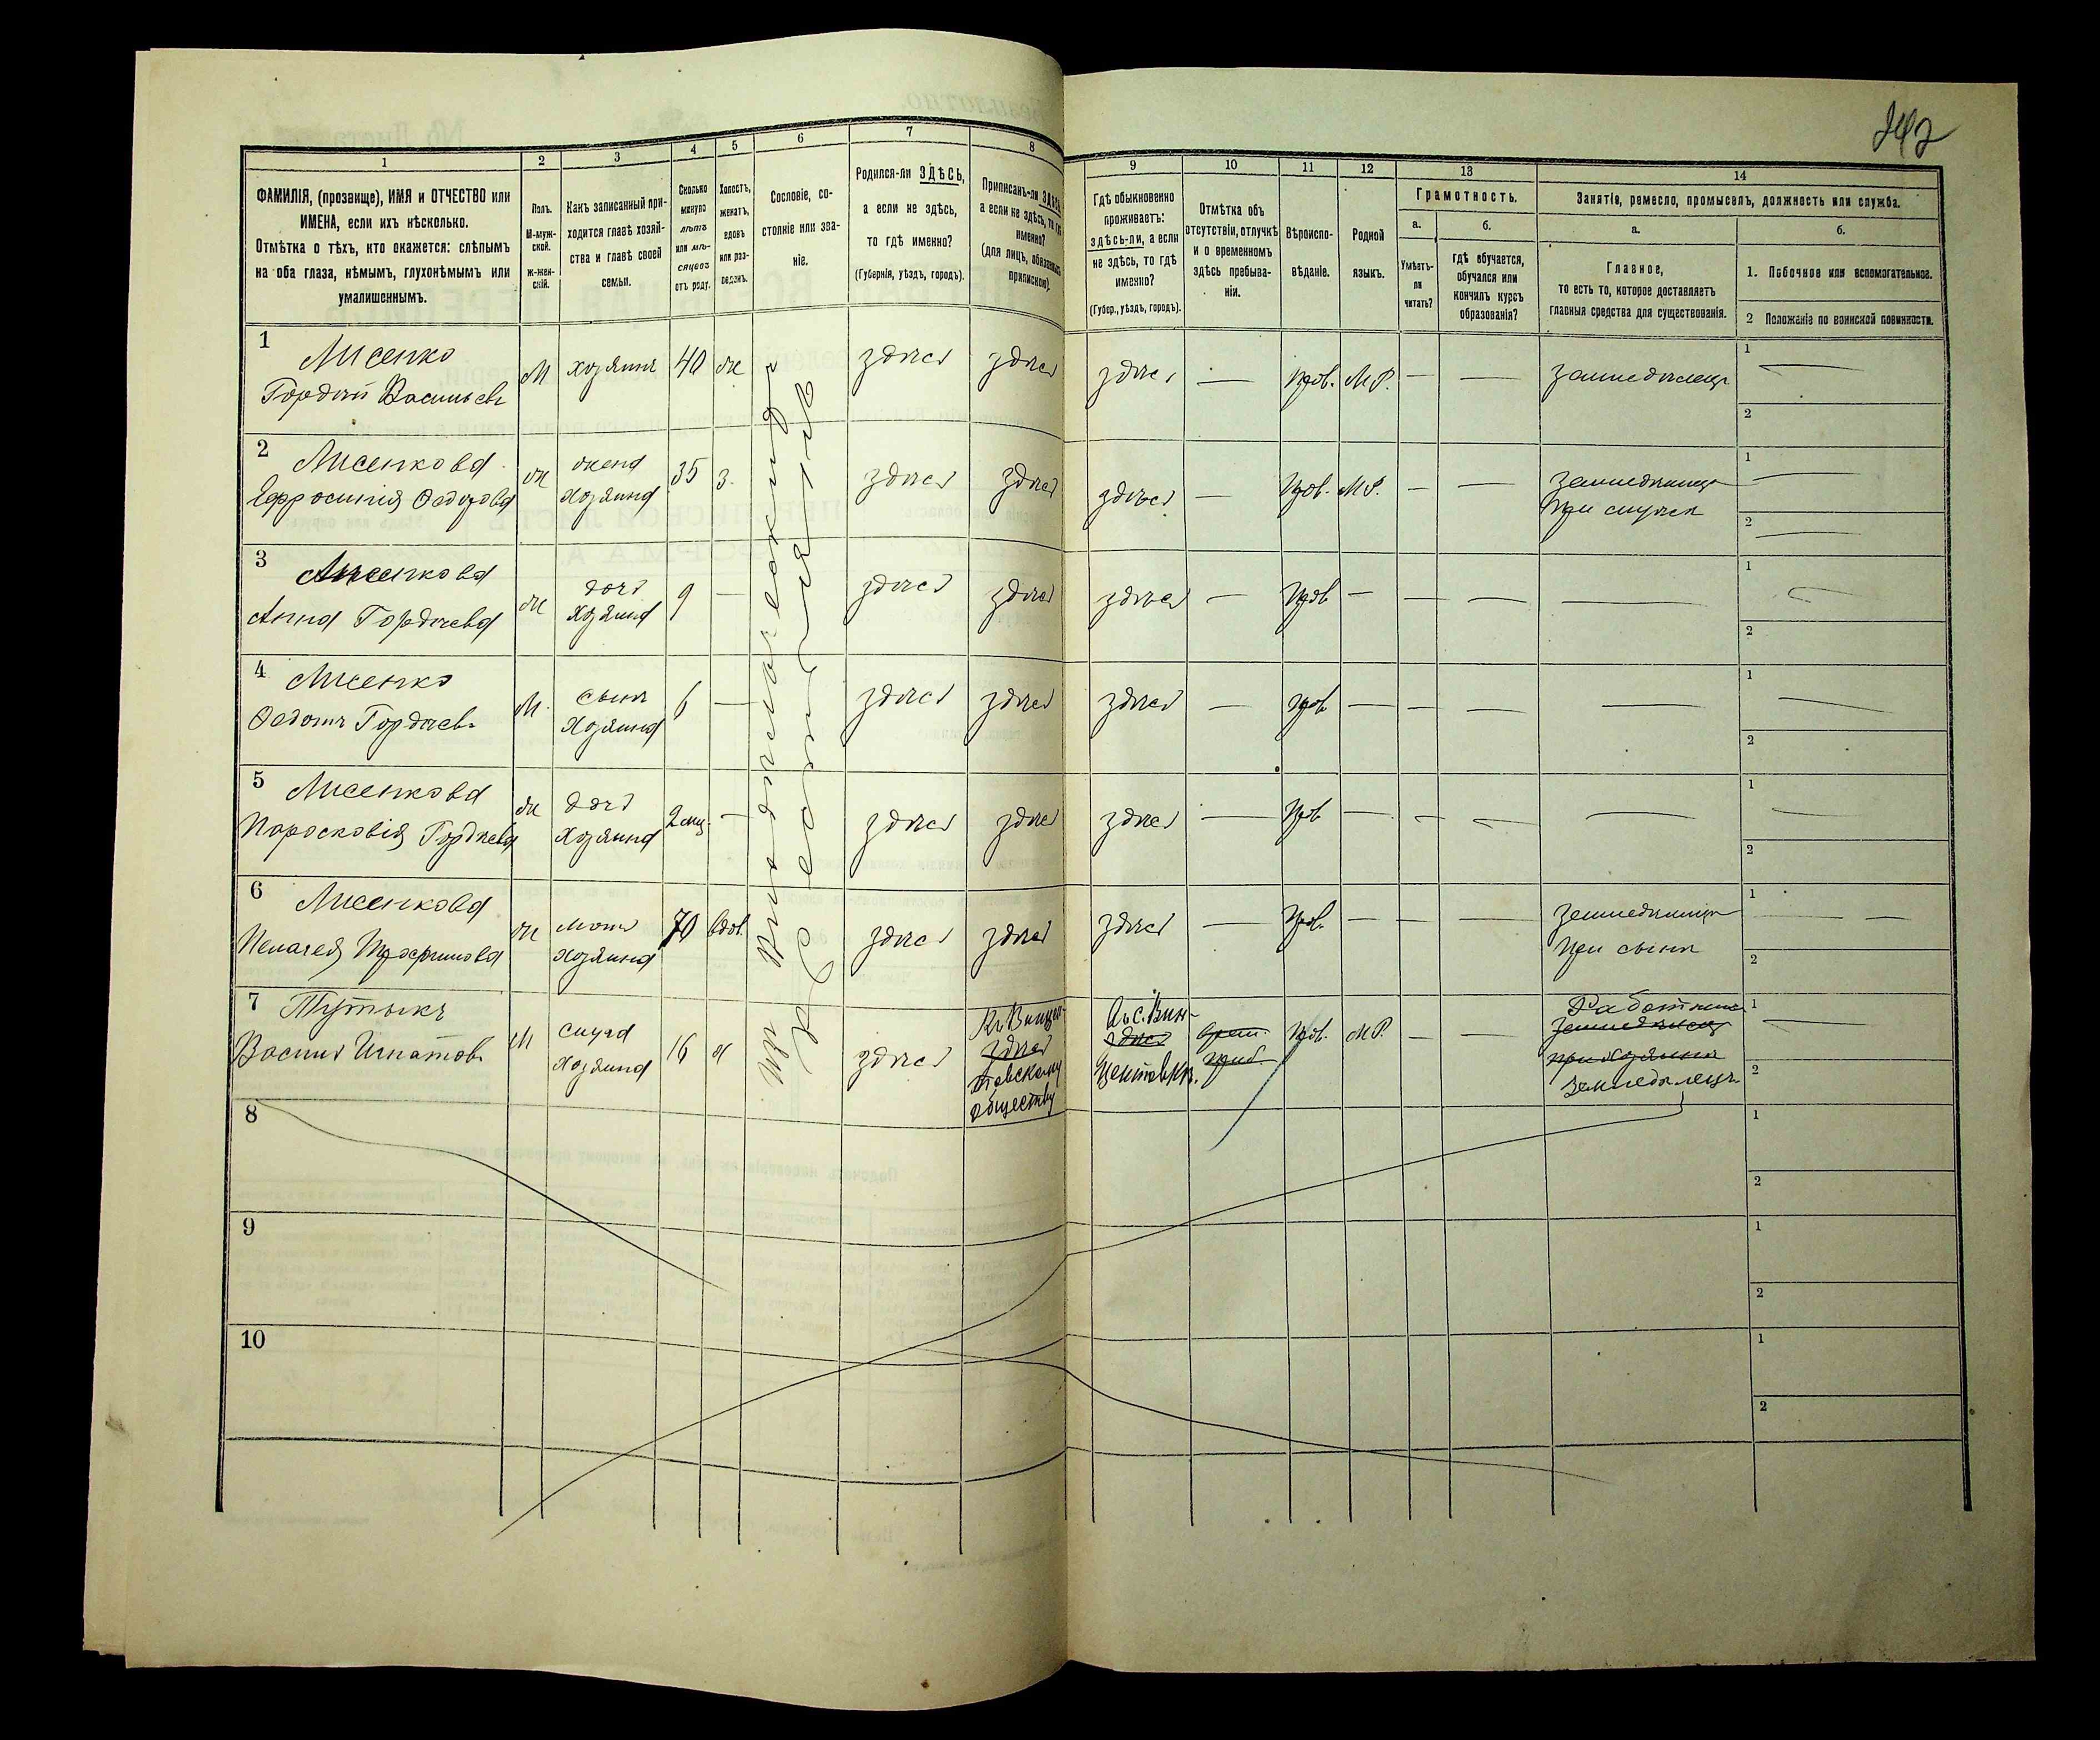 242
1
2
3
4
5
6
7
8
9
10
11
12
13
14
ФАМИЛІЯ, (прозвище), ИМЯ и ОТЧЕСТВО или
ИМЕНА, если ихъ нѣсколько.
Отмѣтка о тѣхъ, кто окажется: слѣпымъ
на оба глаза, нѣмымъ, глухонѣмымъ или
умалишеннымъ.
Полъ.
М-муж-
ской.
ж-жен-
скій.
Какъ записанный при-
ходится главѣ хозяй-
ства и главѣ своей
семьи.
Сколько
минуло
лѣтъ
или мѣ-
сяцевъ
отъ роду.
Холостъ,
женатъ,
вдовъ
или раз-
веденъ.
Сословіе, со-
стояніе или зва-
ніе.
Родился-ли ЗДѢСЬ,
а если не здѣсь,
то гдѣ именно?
(Губернія, уѣздъ, городъ).
Приписанъ-ли ЗДѢСЬ,
а если не здѣсь, то гдѣ
именно?
(для лицъ, обязанныхъ
припискою).
Гдѣ обыкновенно
проживаетъ:
здѣсь-ли, а если
не здѣсь, то гдѣ
именно?
(Губер., уѣздъ, городъ).
Отмѣтка объ
отсутствіи, отлучкѣ
и о временномъ
здѣсь пребыва-
ніи.
Вѣроиспо-
вѣданіе.
Родной
языкъ.
Грамотность.
а.
б.
Умѣетъ-
ли
читать?
гдѣ обучается,
обучался или
кончилъ курсъ
образованія?
Занятіе, ремесло, промыселъ, должность или служба.
а.
б.
Главное,
то есть то, которое доставляетъ
главныя средства для существованія.
1. Побочное или вспомогательное.
2 Положеніе по воинской повинности.
1
Лисенко
Гордѣй Васильевъ
М
хозяинъ
40
ж
здѣсь
здѣсь
здѣсь
—
Прав.
М.Р.
—
—
земледѣлецъ
1 —
2
2
Лисенкова
Ефросинія Ѳедорова
ж
жена
хозяина
35
з.
здѣсь
здѣсь
здѣсь
—
Прав.
М.Р.
—
—
1 —
2 —
3
Лисенкова
Анна Гордѣева
ж
дочь
хозяина
9
—
здѣсь
здѣсь
здѣсь
—
Прав
—
—
—
—
1 —
2
4
Лисенко
Ѳедотъ Гордѣевъ
М.
сынъ
хозяина
6
—
здѣсь
здѣсь
здѣсь
—
Прав
—
—
—
—
1 —
2
5
Лисенкова
Парасковія Гордѣева
ж
дочь
хозяина
2 мѣс.
—
здѣсь
здѣсь
здѣсь
—
Прав
—
—
—
—
1 —
2
6
Лисенкова
Пелагея Трофимова
ж
мать
хозяина
70
вдов.
здѣсь
здѣсь
здѣсь
—
Прав.
—
—
—
земледѣлица
при сынѣ
1 — —
2
7
Тутыкъ
Василь Игнатовъ
М
слуга
хозяина
16
х
здѣсь
здѣсь
товскому
обществу
здѣсь
врем.
преб.
Прав.
М.Р.
—
—
Работникъ
земледѣлецъ
при хозяинѣ
земледѣлецъ
1 —
2
Изъ
крестьянъ
8
1
2
9
1
2
10
1
2